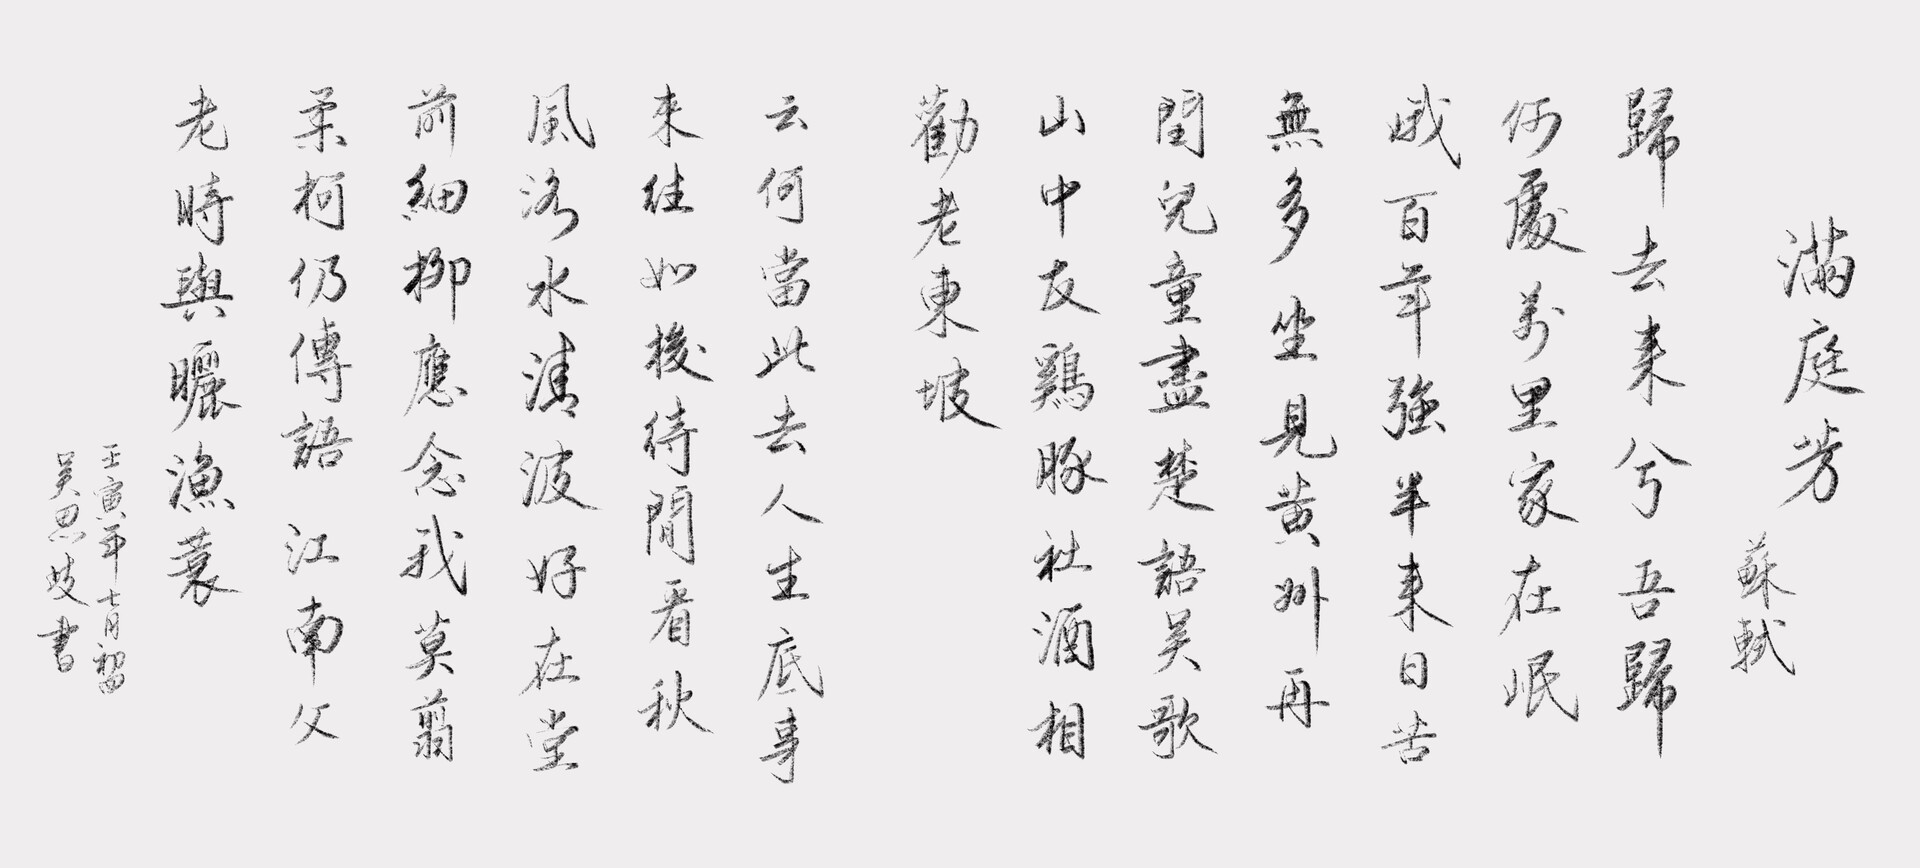 滿庭芳
蘇軾
歸去来兮吾歸
何處萬里家在岷
峨百年強半来日苦
無多坐見黃州再
閏兒童盡楚語吳歌
山中友鷄豚社酒相
勸老東坡
云何當此去人生底事
来往如梭待閒看秋
風洛水清波好在堂
前細柳應念我莫翦
柔柯仍傳語江南父
老時與曬漁蓑
壬寅年七月初四
吴思坡書